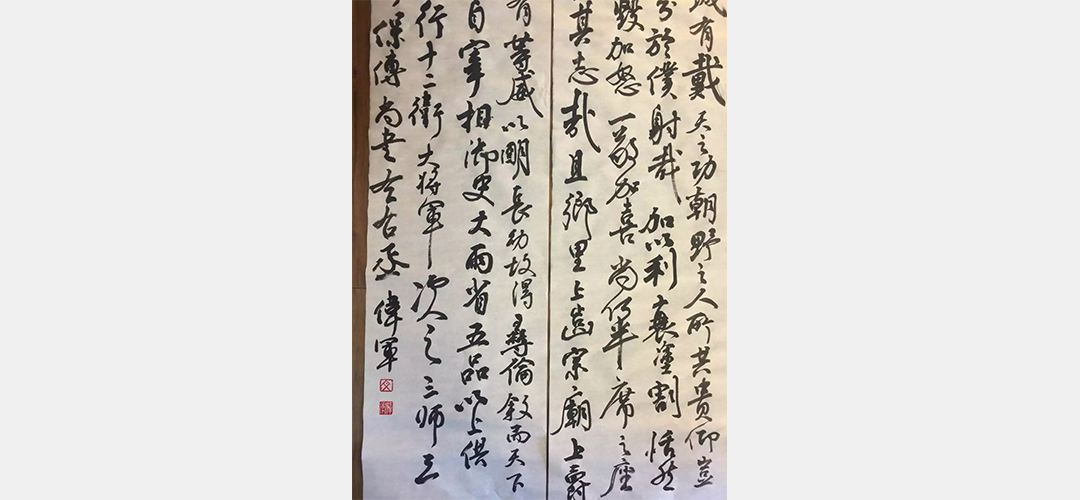 有戴天之功朝野之人所共貴仰豈
於僕射哉加以利衰塗割恬然
毀加怒一敬加喜尚何半席之座
其志哉且鄉里上齒宗廟上爵
有等威以明長幼故得彝倫敘而天下
自宰相御史大兩省五品以上供
行十二衛大將軍次之三師三
保傅尚書左右丞偉軍